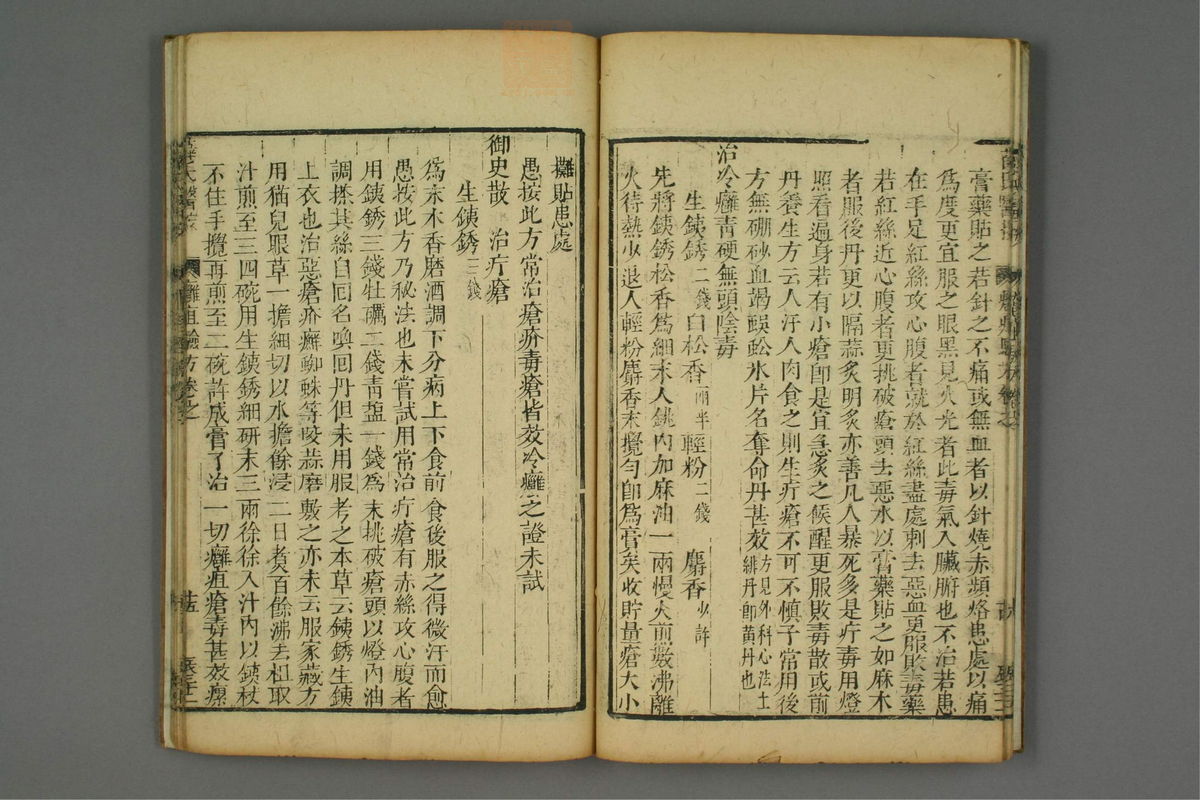 膏藥貼之若針之不痛或無血者以針燒赤頻烙患處以痛
爲度更宜服之眼黑見火光者此毒氣入臟腑也不治若患
在手足紅絲攻心腹者就於紅絲盡處刺去惡血更服敗毒藥
若紅絲近心腹者更挑破瘡頭去惡水以膏藥貼之如麻木
者服後丹更以隔蒜炙明炙亦善凡人暴死多是疔毒用燈
照看遍身若有小瘡卽是宜急炙之候醒更服敗毒散或前
丹養生方云人汗入肉食之則生疔瘡不可不慎予常用後
方無硼砂血竭蜈蚣氷片名奪命丹甚效方見外科心法土
緋丹卽黄丹也
治冷癰靑硬無頭陰毒
生銕銹二錢白松香一兩半輕粉二錢 麝香少許
先將銕銹松香爲細末入銚內加麻油一兩慢火煎數沸離
火待熱少退入輕粉麝香末攪勻卽爲膏矣收貯量瘡大小
攤貼患處
愚按此方常治瘡疥毒瘡皆效冷癰之證未試
御史散 治疔瘡
生銕銹三錢
爲末木香磨酒調下分病上下食前食後服之得微汗而愈
愚按此方乃秘法也未嘗試用常治疔瘡有赤絲攻心腹者
用銕銹三錢牡礪二錢靑鹽一錢爲末挑破瘡頭以燈內油
調搽其絲自囘名喚囘丹但未用服考之本草云銕銹生銕
上衣也治惡瘡疥癬蜘蛛等咬蒜磨敷之亦未云服家藏方
用猫兒眼草一擔細切以水擔餘浸二日煑百餘沸去柤取
汁煎至三四碗用生銕銹細研末三兩徐徐入汁內以銕杖
不住手攪再煎至二碗許成膏了治一切癰疽瘡毒甚效瘭